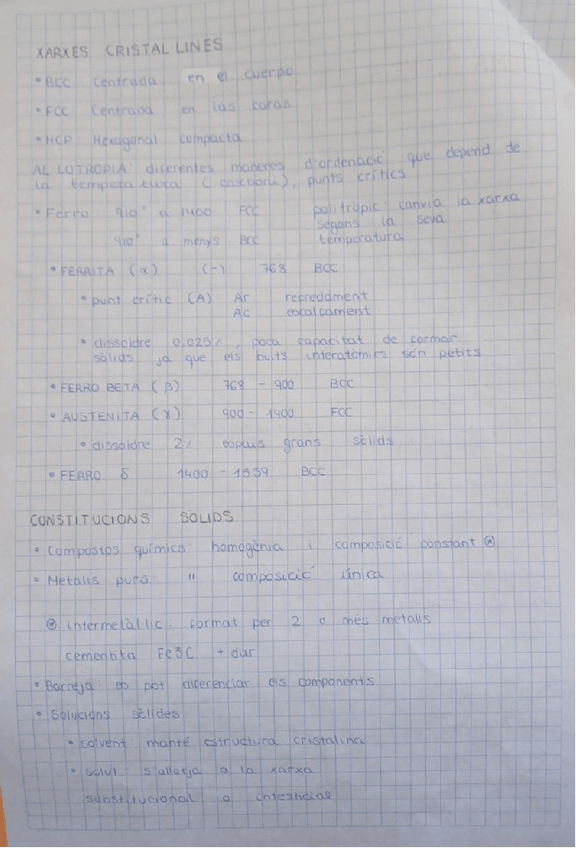 XARXES CRISTAL·LINES
• BCC Centrada en el cuerpo
• FCC Centrada en las caras
• HCP Hexagonal compacta
AL·LOTROPIA: diferentes maneres d'ordenació que depend de
la temperatura (gasboni), punts crítics
• Ferro 910° a 1400 FCC politròpic canvia la xarxa
segons la seva
910° a menys BCC temperatura
• FERRITA (α) (-) 768 BCC
• punt crític (A) Ar refredament
AC escalfament
• dissoldre 0,025%, poca capacitat de formar
sòlids ja que els buits interatòmics són petits
• FERRO BETA (β) 768 - 900 BCC
• AUSTENITA (γ) 900 - 1400 FCC
• dissoldre 2% espais grans sòlids
• FERRO δ 1400 - 1539 BCC
CONSTITUCIONS SOLIDS
• Compostos químics: homogènia i composició constant ⊛
• Metalls purs: " composició única
⊛ intermetàl·lic: format per 2 o més metalls
cementita Fe3C + dur
• Barreja: es pot diferenciar els components
• Solucions sòlides
• solvent manté estructura cristalina
• solut: s'allotja a la xarxa
substitucional o intersticial